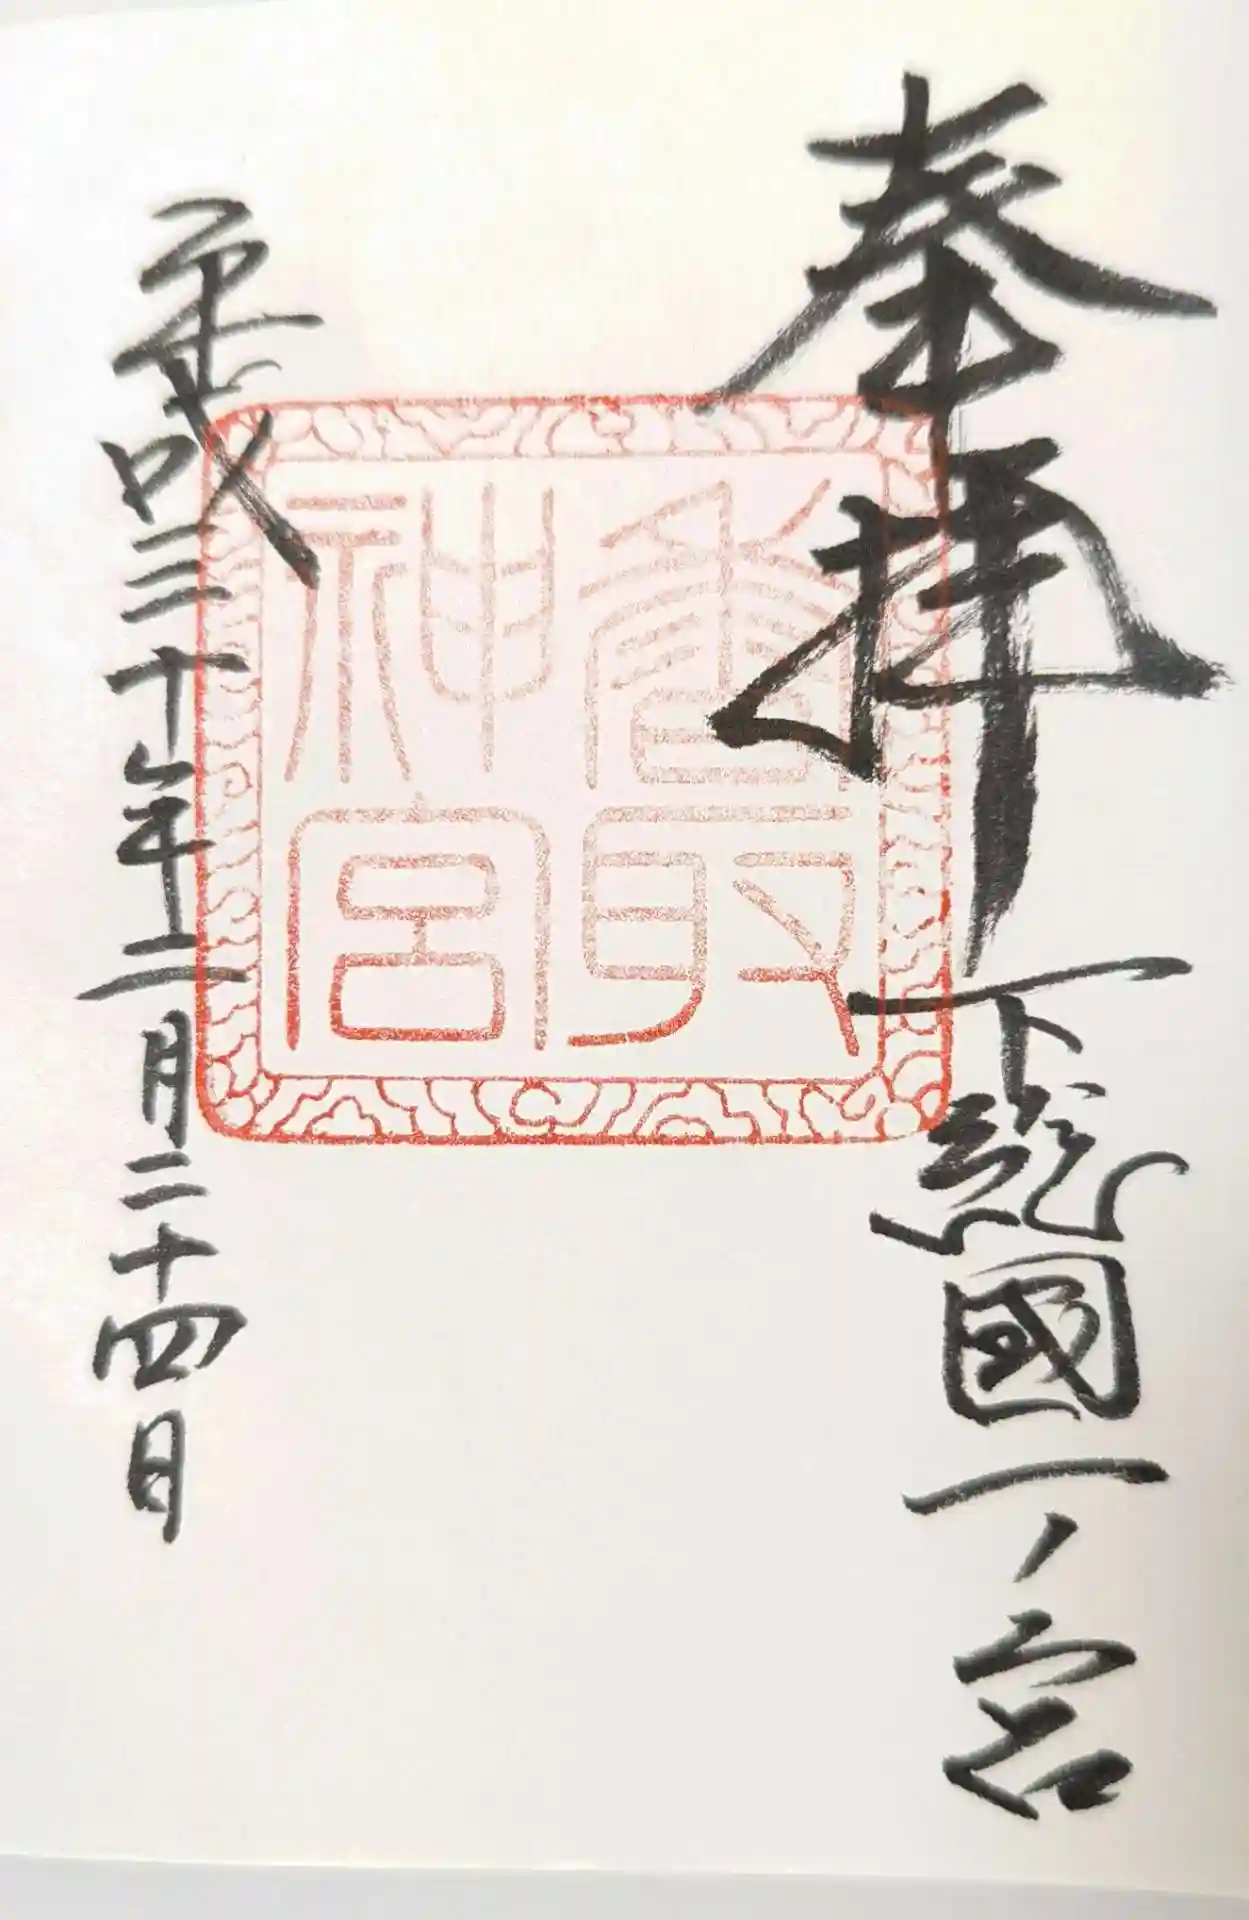 奉拝
下総國一ノ宮
香取
神宮
平成三十年十二月二十四日